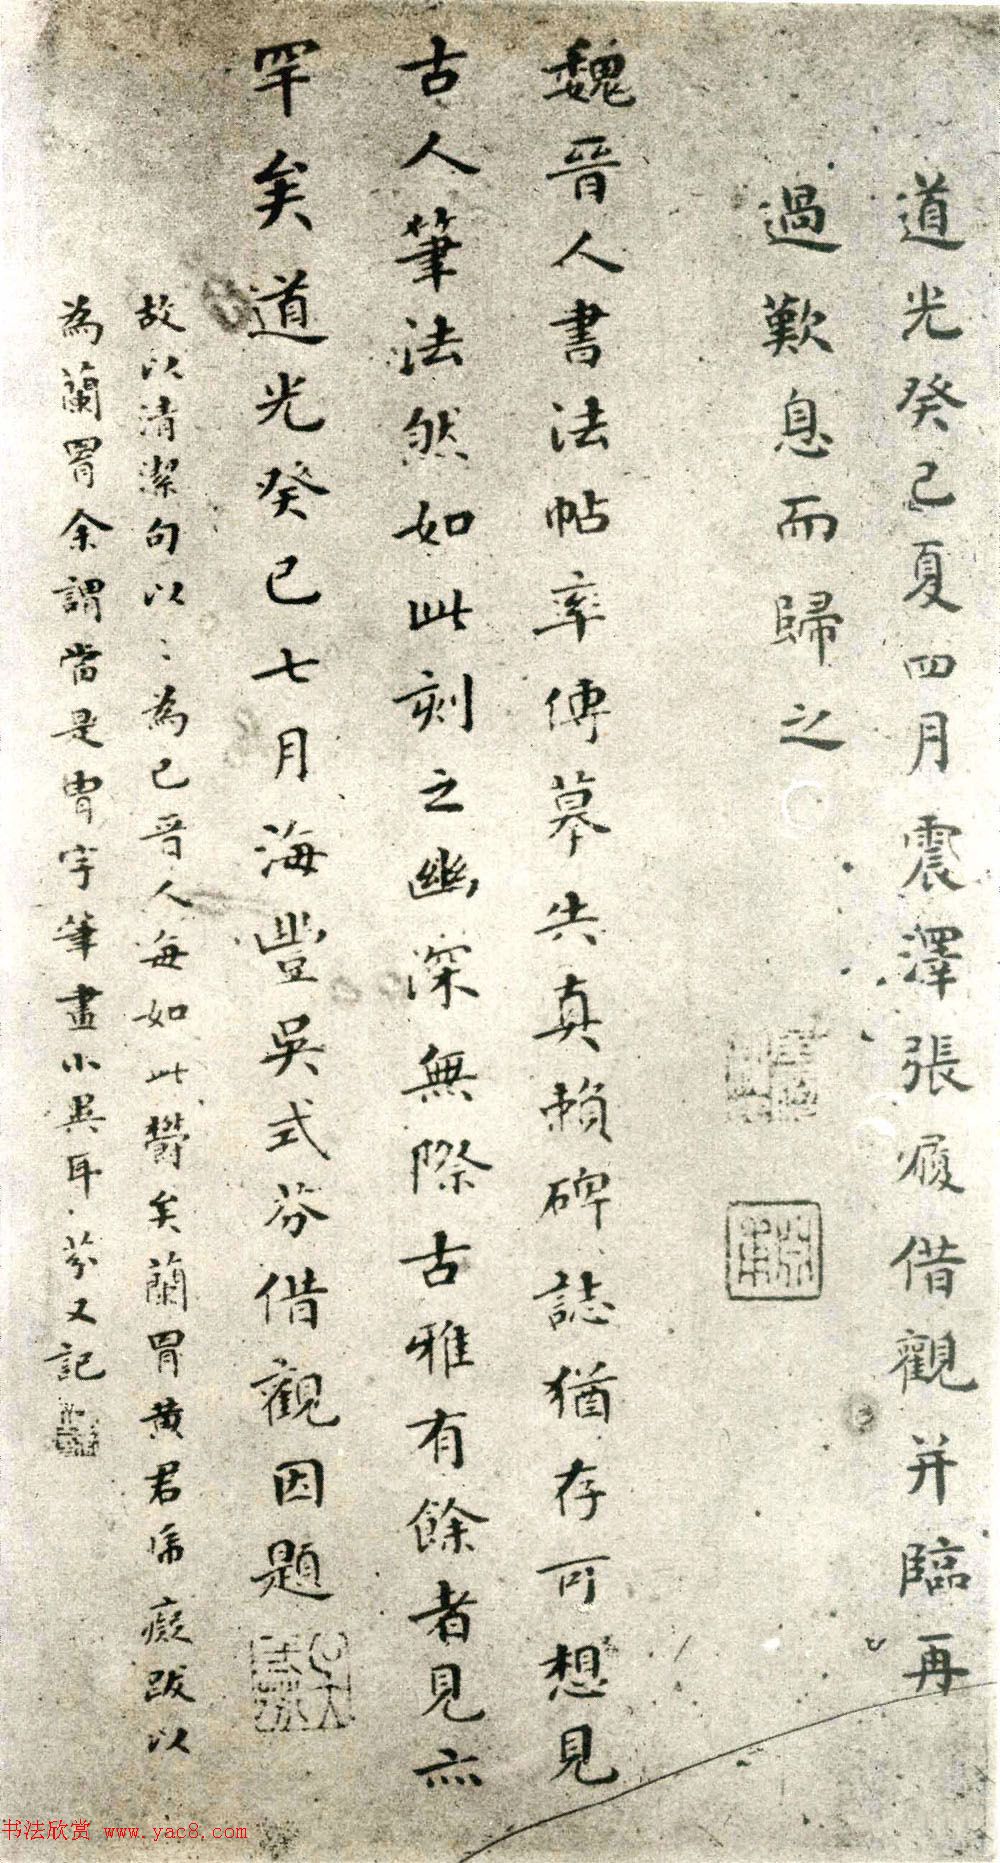 道光癸巳夏四月震澤張履借觀并臨再
過歎息而歸之
魏晉人書法帖率傳摹失真賴碑誌猶存可想見
古人筆法然如此刻之幽深無際古雅有餘者見亦
罕矣道光癸巳七月海豐吳式芬借觀因題
故以清潔句以〻為已晉人每如此欝矣蘭胃黄君希癡跋以
為蘭胃余謂當是胄字筆畫小異耳芬又記
书法欣赏 www.yac8.com